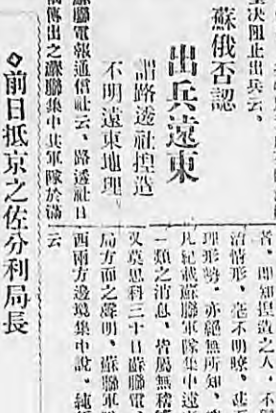 決阻止出兵云、
蘇俄否認
出兵遠東
謂路透社揑造
不明遠東地理
蘇聯電報通信社云、路透社日
傳出之蘇聯集中其軍隊於滿
苦、即知揑造之人、不
治情形、毫不明瞭、
理形勢、亦絕無所知、
凡紀載蘇聯軍隊集中遠東
一類之消息、皆屬無稽
又莫思科三十日蘇聯電、
局方面之聲明、蘇聯軍
西兩方邊境集中說、純
云
◇前日抵京之佐分利局長